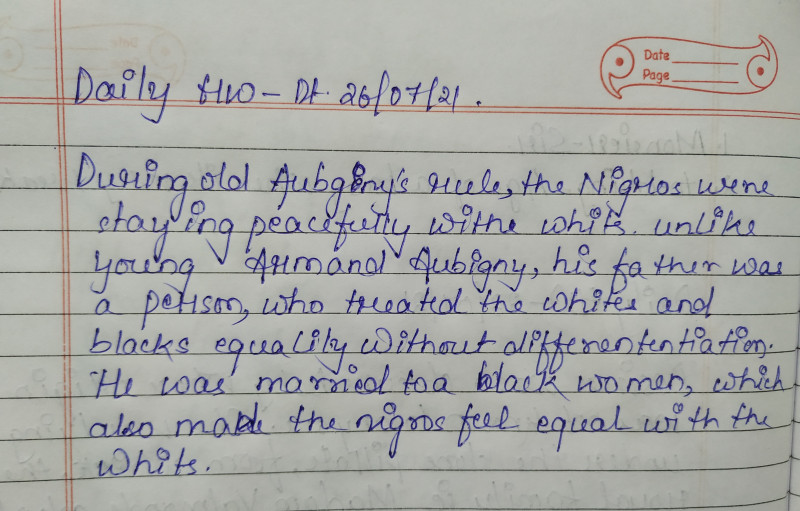 Date
Page
Daily HW - Dt. 26/07/21.
During old Aubginy's rule, the Nigros were
staying peacefully withe whits. unlike
young Armand Aubigny, his father was
a person, who treated the whites and
blacks equalily without differententiation.
He was married to a black women, which
also made the nigros feel equal with the
whits.